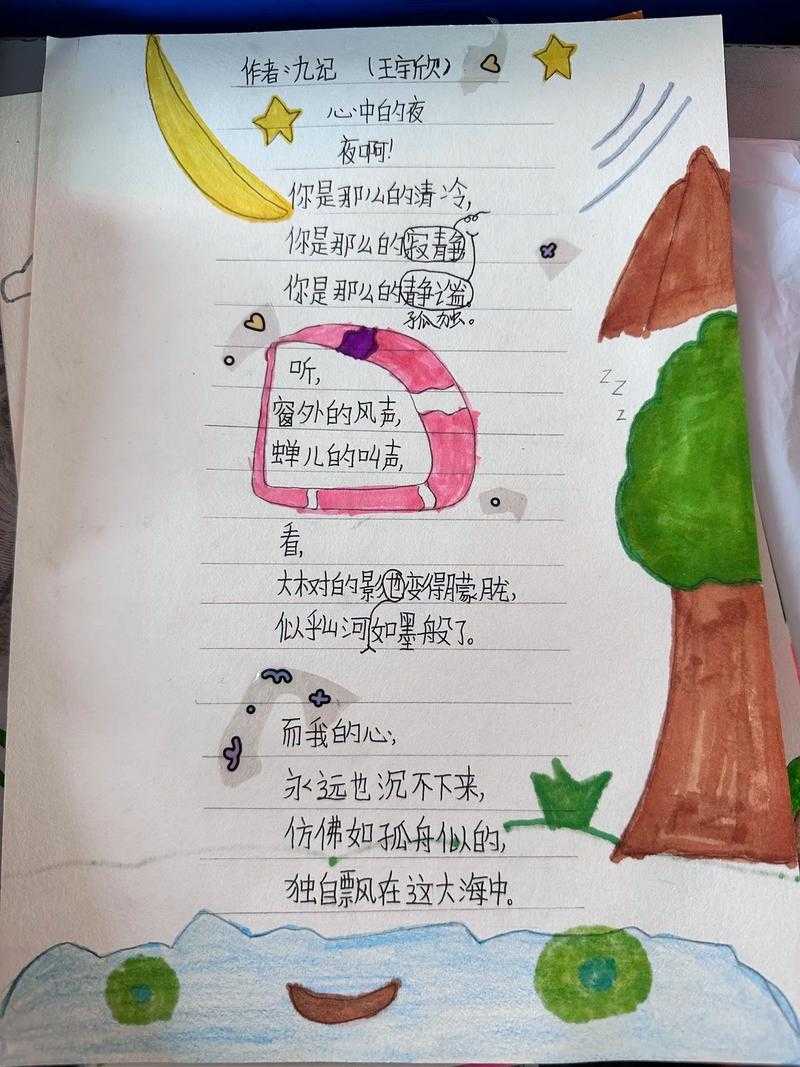 作者:九记 （王宇欣）
心中的夜
夜啊!
你是那么的清冷,
你是那么的寂静
你是那么的静谧。
孤独。
听,
窗外的风声,
蝉儿的叫声,
z
z
z
看,
大树的影也变得朦胧,
似乎山河如墨般了。
而我的心,
永远也沉不下来,
仿佛如孤舟似的,
独自飘风在这大海中。